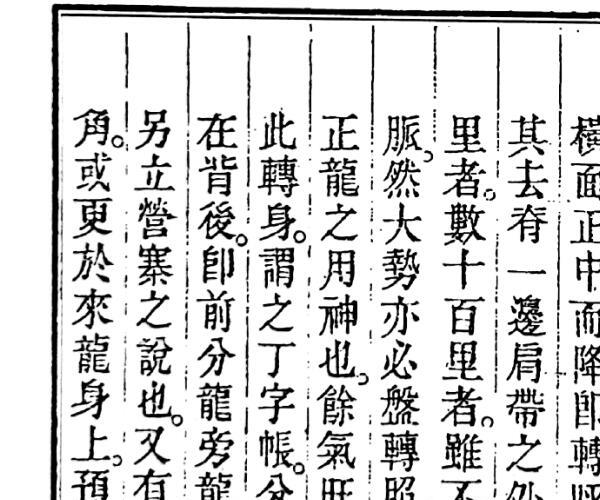 橫面正中而降卽轉
其去脊一邊肩帶之外
里者。數十百里者。雖不
脈。然大勢亦必盤轉照
正龍之用神也。餘氣旺
此轉身。謂之丁字帳。分
在背後。卽前分龍旁龍
另立營寨之說也。又有
角。或更於來龍身上。預